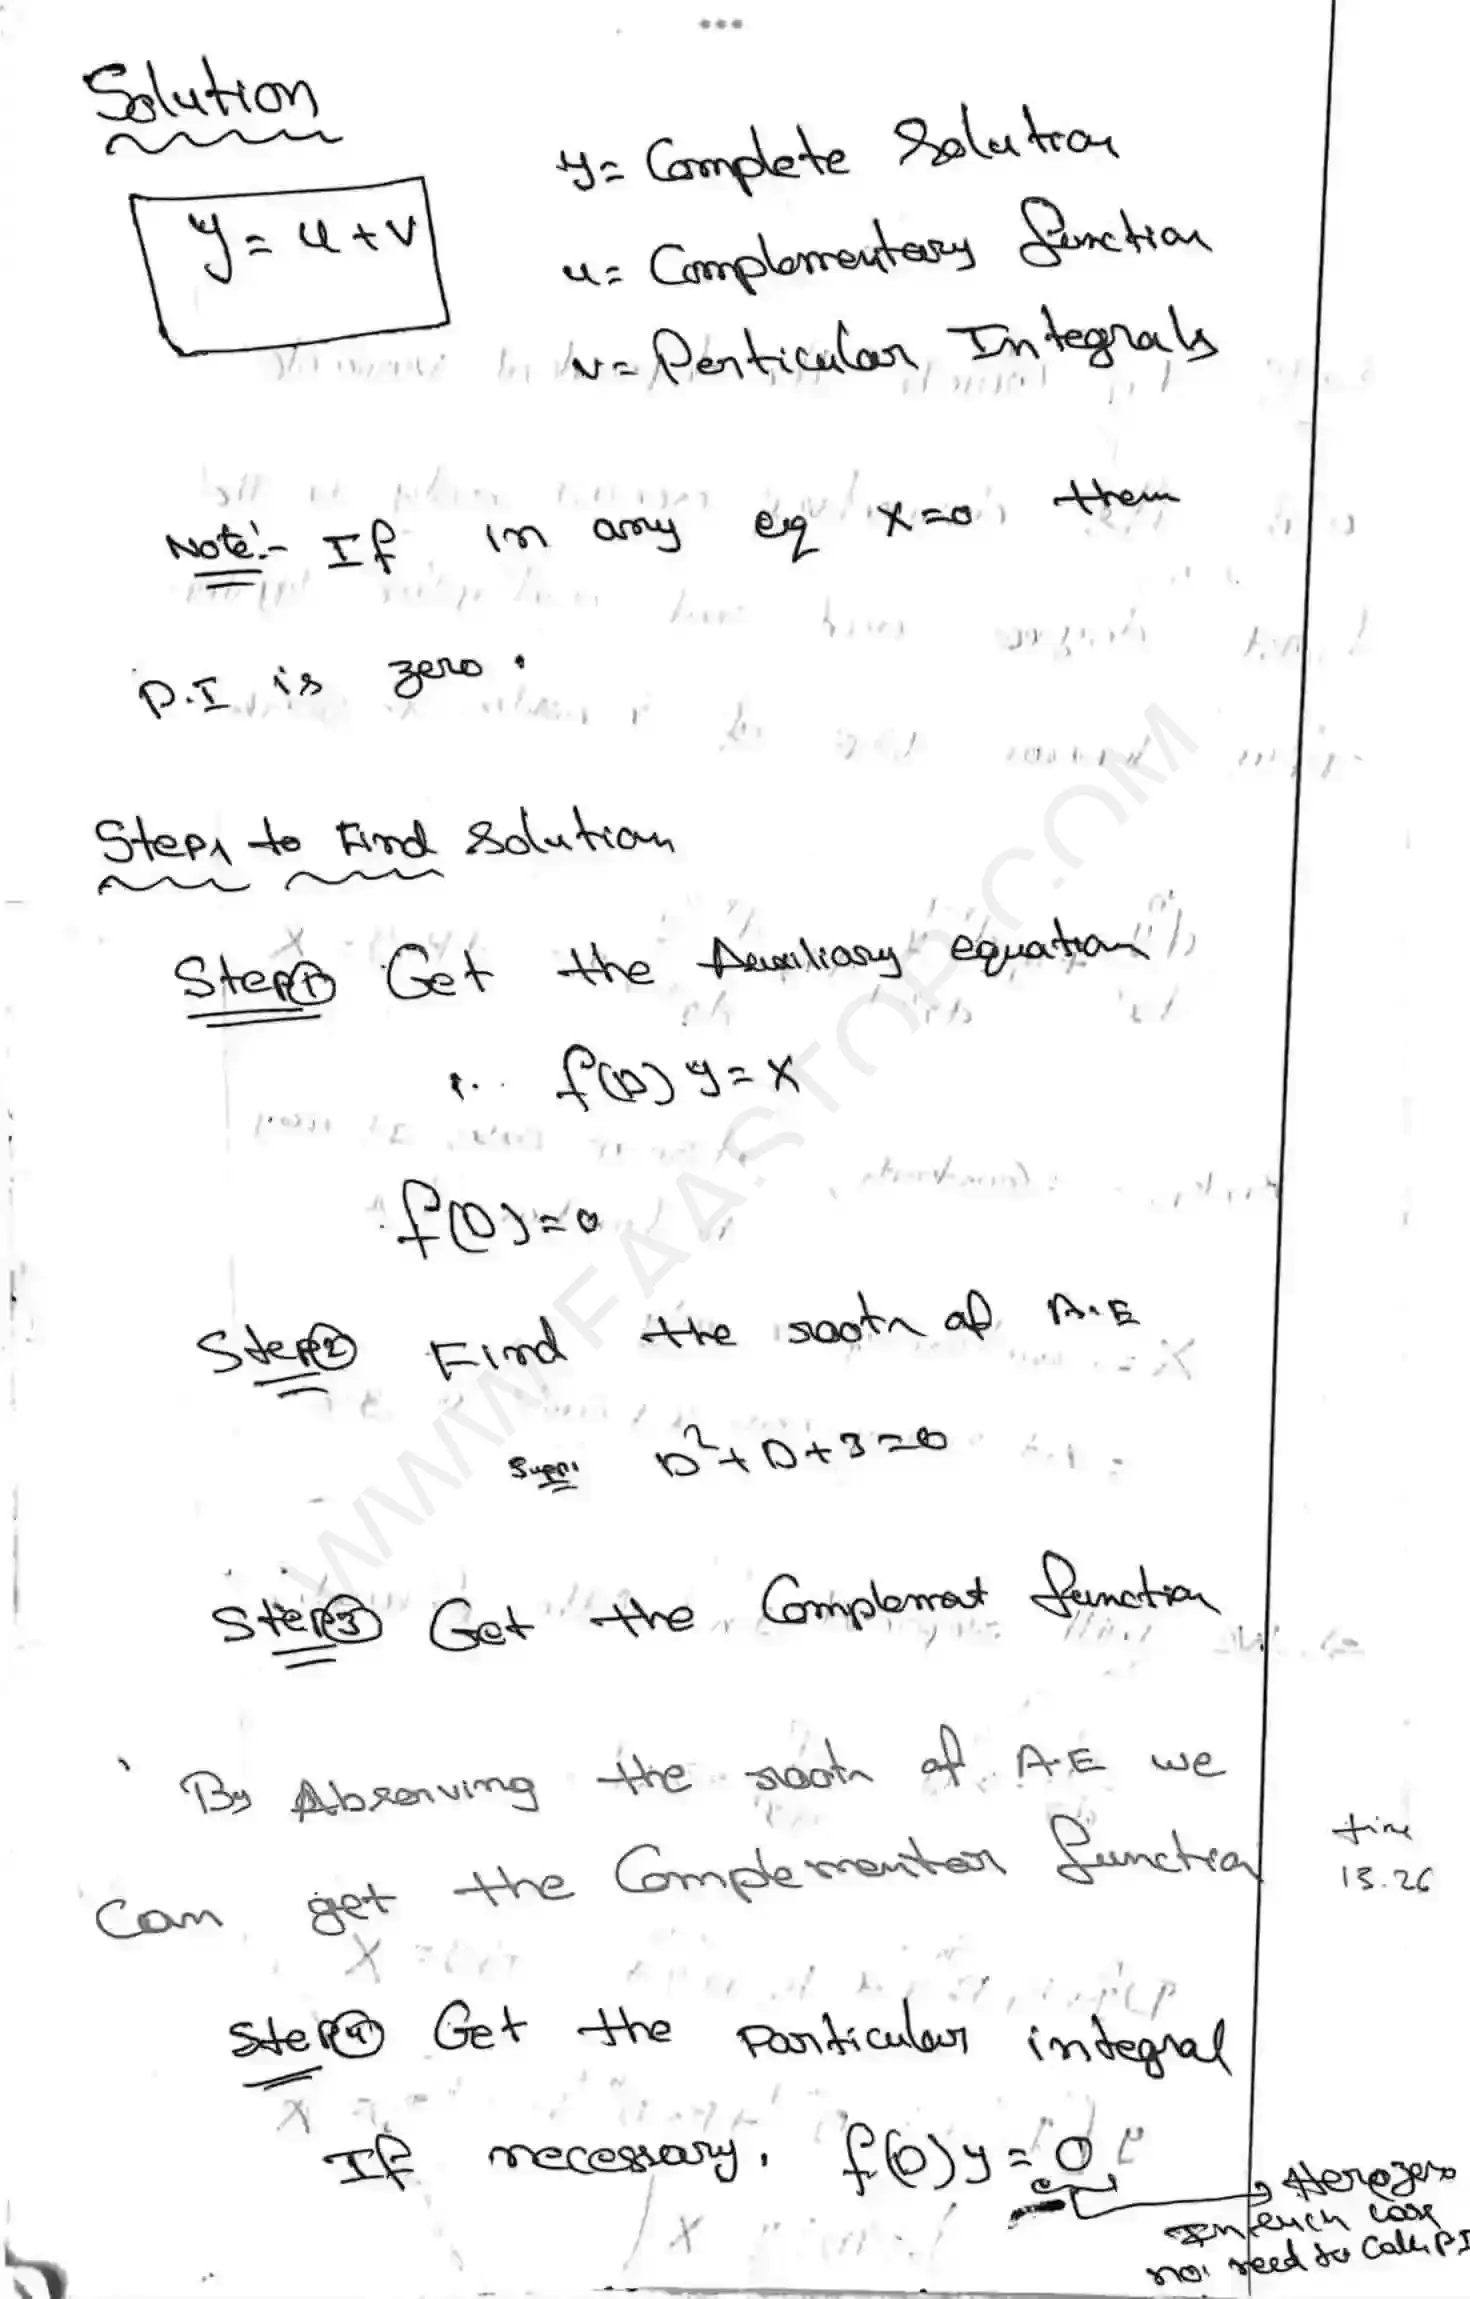 Solution
y = u + v
y = Complete Solution
u = Complementary function
v = Perticular Integrals
Note:- If in any eq X=0 them
P.I is zero.
Steps to Find Solution
Step① Get the Auxiliary equation
f(D) y = X
f(D) = 0
Step② Find the roots of A.E
D²+D+3=0
Step③ Get the Complemat function
By Abserving the roots of A.E we
Can get the Complementar function
time
13.26
Step④ Get the Particular integral
If necessary. f(D)y = 0
Here zero
In such case
no need to Calc. P.I
WWW.FAASTOP.COM